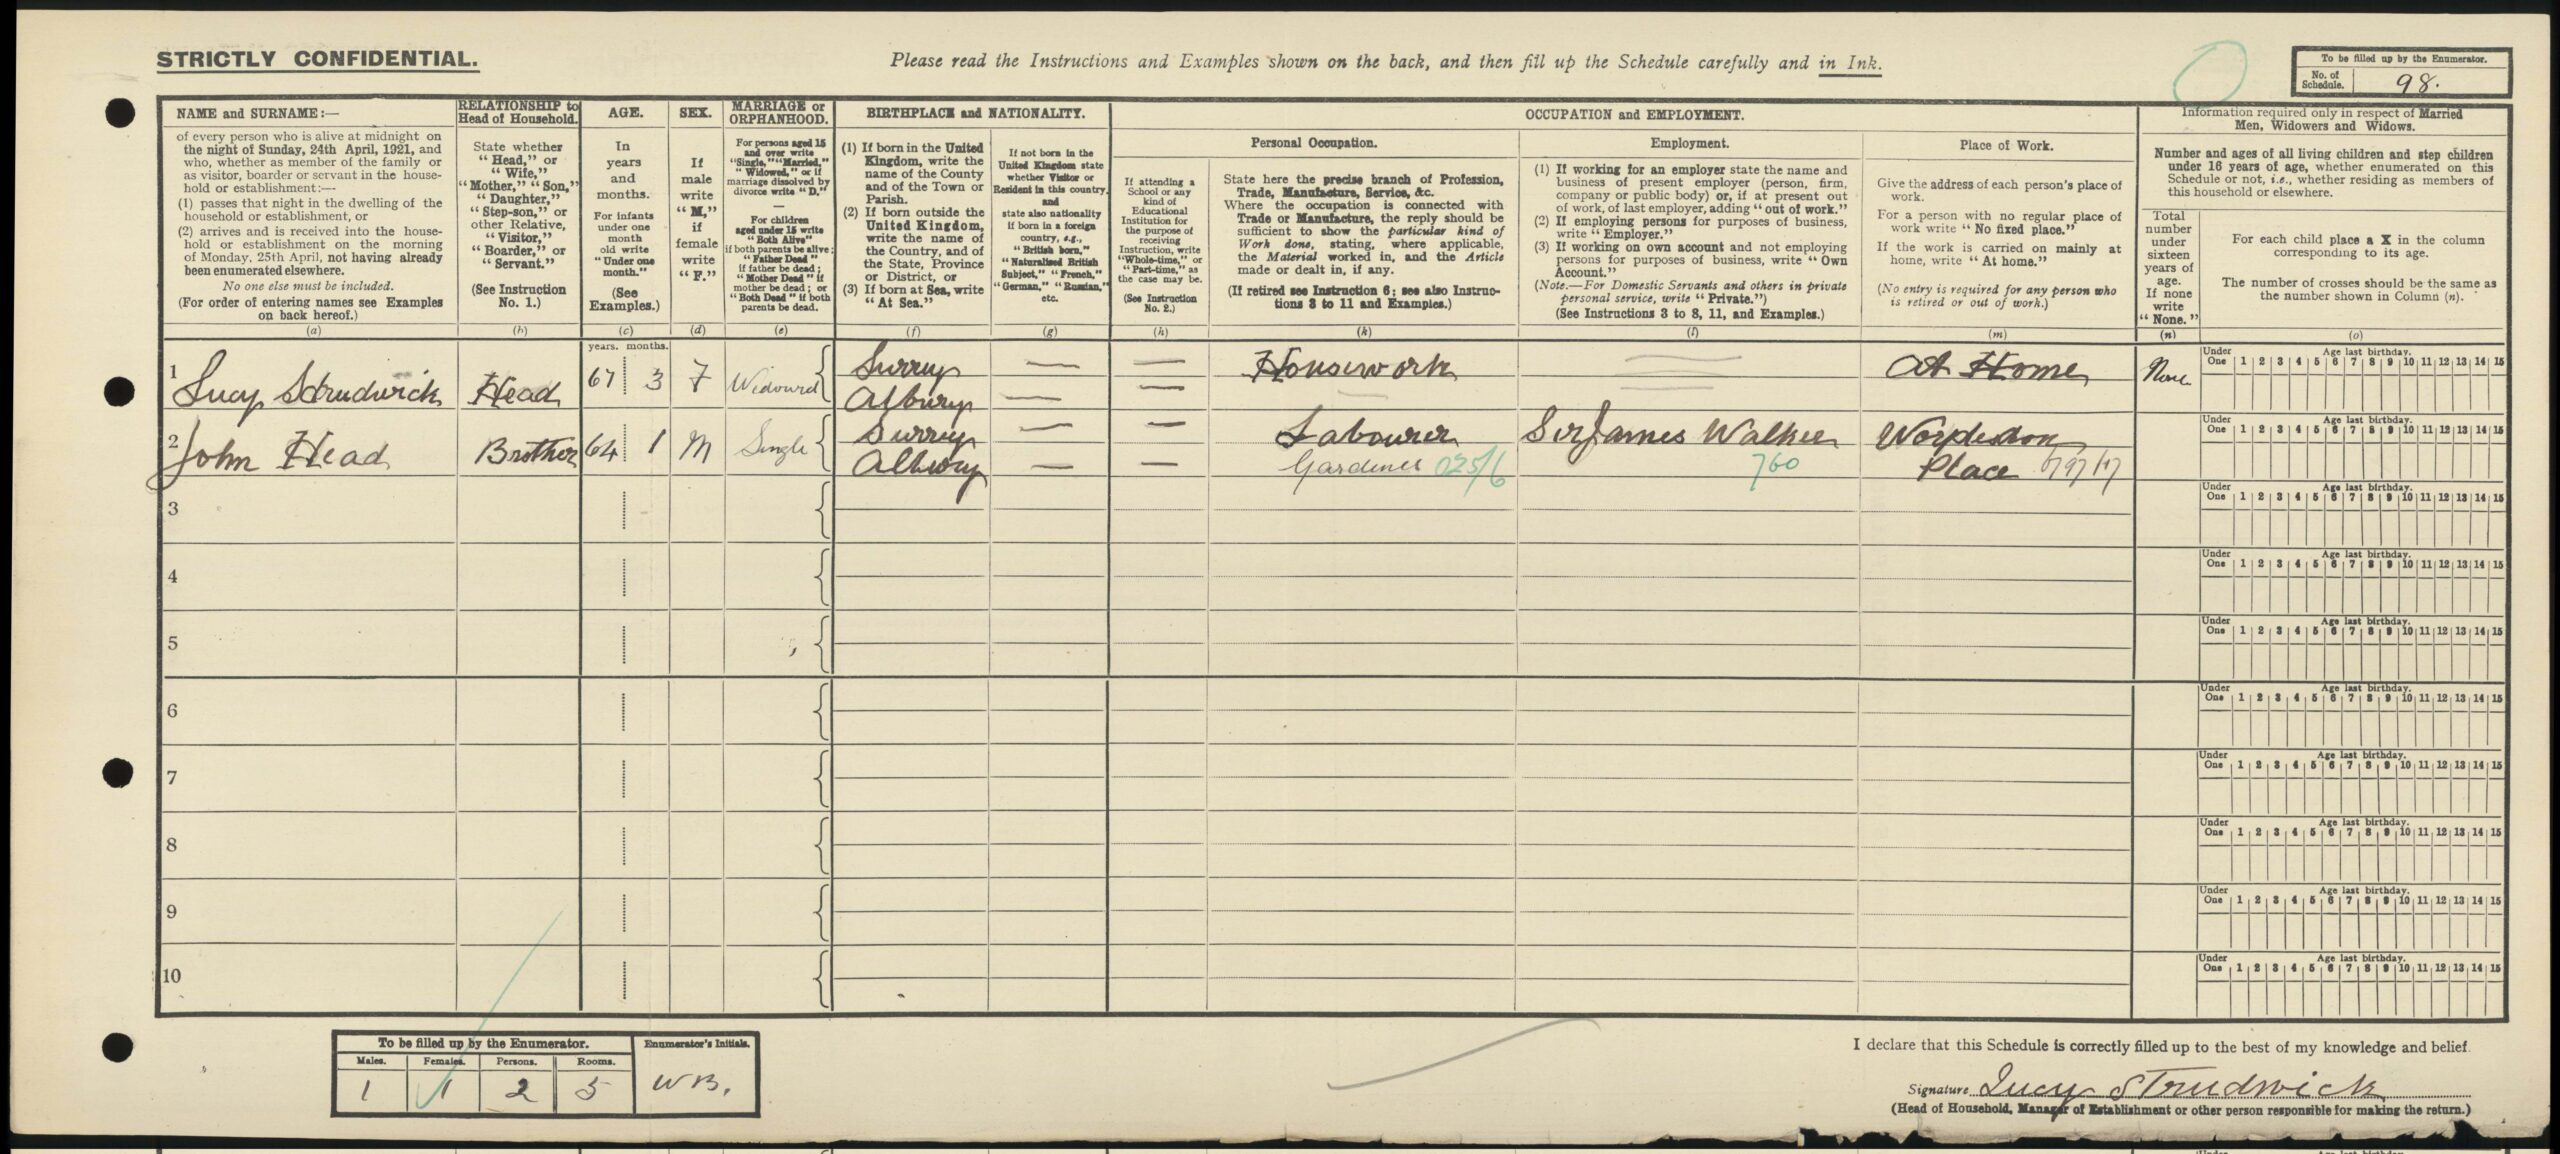 STRICTLY CONFIDENTIAL.
Please read the Instructions and Examples shown on the back, and then fill up the Schedule carefully and in Ink.
To be filled up by the Enumerator.
No. of Schedule. 98.
NAME and SURNAME:—
of every person who is alive at midnight on
the night of Sunday, 24th April, 1921, and
who, whether as member of the family or
as visitor, boarder or servant in the house-
hold or establishment:—
(1) passes that night in the dwelling of the
household or establishment, or
(2) arrives and is received into the house-
hold or establishment on the morning
of Monday, 25th April, not having already
been enumerated elsewhere.
No one else must be included.
(For order of entering names see Examples
on back hereof.)
(a)
RELATIONSHIP to
Head of Household.
State whether
"Head," or
"Wife,"
"Mother," "Son,"
"Daughter,"
"Step-son," or
other Relative,
"Visitor,"
"Boarder," or
"Servant."
(See Instruction
No. 1.)
(b)
AGE.
In
years
and
months.
For infants
under one
month
old write
"Under one
month."
(See
Examples.)
(c)
SEX.
If
male
write
"M,"
if
female
write
"F."
(d)
MARRIAGE or
ORPHANHOOD.
For persons aged 15
and over write
"Single," "Married,"
"Widowed," or if
marriage dissolved by
divorce write "D."
—
For children
aged under 15 write
"Both Alive"
if both parents be alive;
"Father Dead"
if father be dead;
"Mother Dead" if
mother be dead; or
"Both Dead" if both
parents be dead.
(e)
BIRTHPLACE and NATIONALITY.
(1) If born in the United
Kingdom, write the
name of the County
and of the Town or
Parish.
(2) If born outside the
United Kingdom,
write the name of
the Country, and of
the State, Province
or District, or
(3) If born at Sea, write
"At Sea."
(f)
If not born in the
United Kingdom state
whether Visitor or
Resident in this country,
and
state also nationality
if born in a foreign
country, e.g.,
"British born,"
"Naturalised British
Subject," "French,"
"German," "Russian,"
etc.
(g)
OCCUPATION and EMPLOYMENT.
Personal Occupation.
If attending a
School or any
kind of
Educational
Institution for
the purpose of
receiving
Instruction, write
"Whole-time," or
"Part-time," as
the case may be.
(See Instruction
No. 2.)
(h)
State here the precise branch of Profession,
Trade, Manufacture, Service, &c.
Where the occupation is connected with
Trade or Manufacture, the reply should be
sufficient to show the particular kind of
Work done, stating, where applicable,
the Material worked in, and the Article
made or dealt in, if any.
(If retired see Instruction 6; see also Instruc-
tions 3 to 11 and Examples.)
(k)
Employment.
(1) If working for an employer state the name and
business of present employer (person, firm,
company or public body) or, if at present out
of work, of last employer, adding "out of work."
(2) If employing persons for purposes of business,
write "Employer."
(3) If working on own account and not employing
persons for purposes of business, write "Own
Account."
(Note.—For Domestic Servants and others in private
personal service, write "Private.")
(See Instructions 3 to 8, 11, and Examples.)
(l)
Place of Work.
Give the address of each person's place of
work.
For a person with no regular place of
work write "No fixed place."
If the work is carried on mainly at
home, write "At home."
(No entry is required for any person who
is retired or out of work.)
(m)
Information required only in respect of Married
Men, Widowers and Widows.
Number and ages of all living children and step children
under 16 years of age, whether enumerated on this
Schedule or not, i.e., whether residing as members of
this household or elsewhere.
Total
number
under
sixteen
years of
age.
If none
write
"None."
(n)
For each child place a X in the column
corresponding to its age.
The number of crosses should be the same as
the number shown in Column (n).
(o)
years. months.
1 Lucy Strudwick Head 67 3 F Widowed Surrey — — Housework At Home None
Albury — —
Under One Age last birthday. 1 2 3 4 5 6 7 8 9 10 11 12 13 14 15
2 John Head Brother 64 1 M Single Surrey — — Labourer Sir James Walker Worplesdon
Albury — — Gardener 025/6 760 Place
Under One Age last birthday. 1 2 3 4 5 6 7 8 9 10 11 12 13 14 15
3 Under One Age last birthday. 1 2 3 4 5 6 7 8 9 10 11 12 13 14 15
4 Under One Age last birthday. 1 2 3 4 5 6 7 8 9 10 11 12 13 14 15
5 Under One Age last birthday. 1 2 3 4 5 6 7 8 9 10 11 12 13 14 15
6 Under One Age last birthday. 1 2 3 4 5 6 7 8 9 10 11 12 13 14 15
7 Under One Age last birthday. 1 2 3 4 5 6 7 8 9 10 11 12 13 14 15
8 Under One Age last birthday. 1 2 3 4 5 6 7 8 9 10 11 12 13 14 15
9 Under One Age last birthday. 1 2 3 4 5 6 7 8 9 10 11 12 13 14 15
10 Under One Age last birthday. 1 2 3 4 5 6 7 8 9 10 11 12 13 14 15
To be filled up by the Enumerator.
Males. Females. Persons. Rooms.
1 1 2 5
Enumerator's Initials.
WB.
I declare that this Schedule is correctly filled up to the best of my knowledge and belief.
Signature Lucy Strudwick
(Head of Household, Manager of Establishment or other person responsible for making the return.)